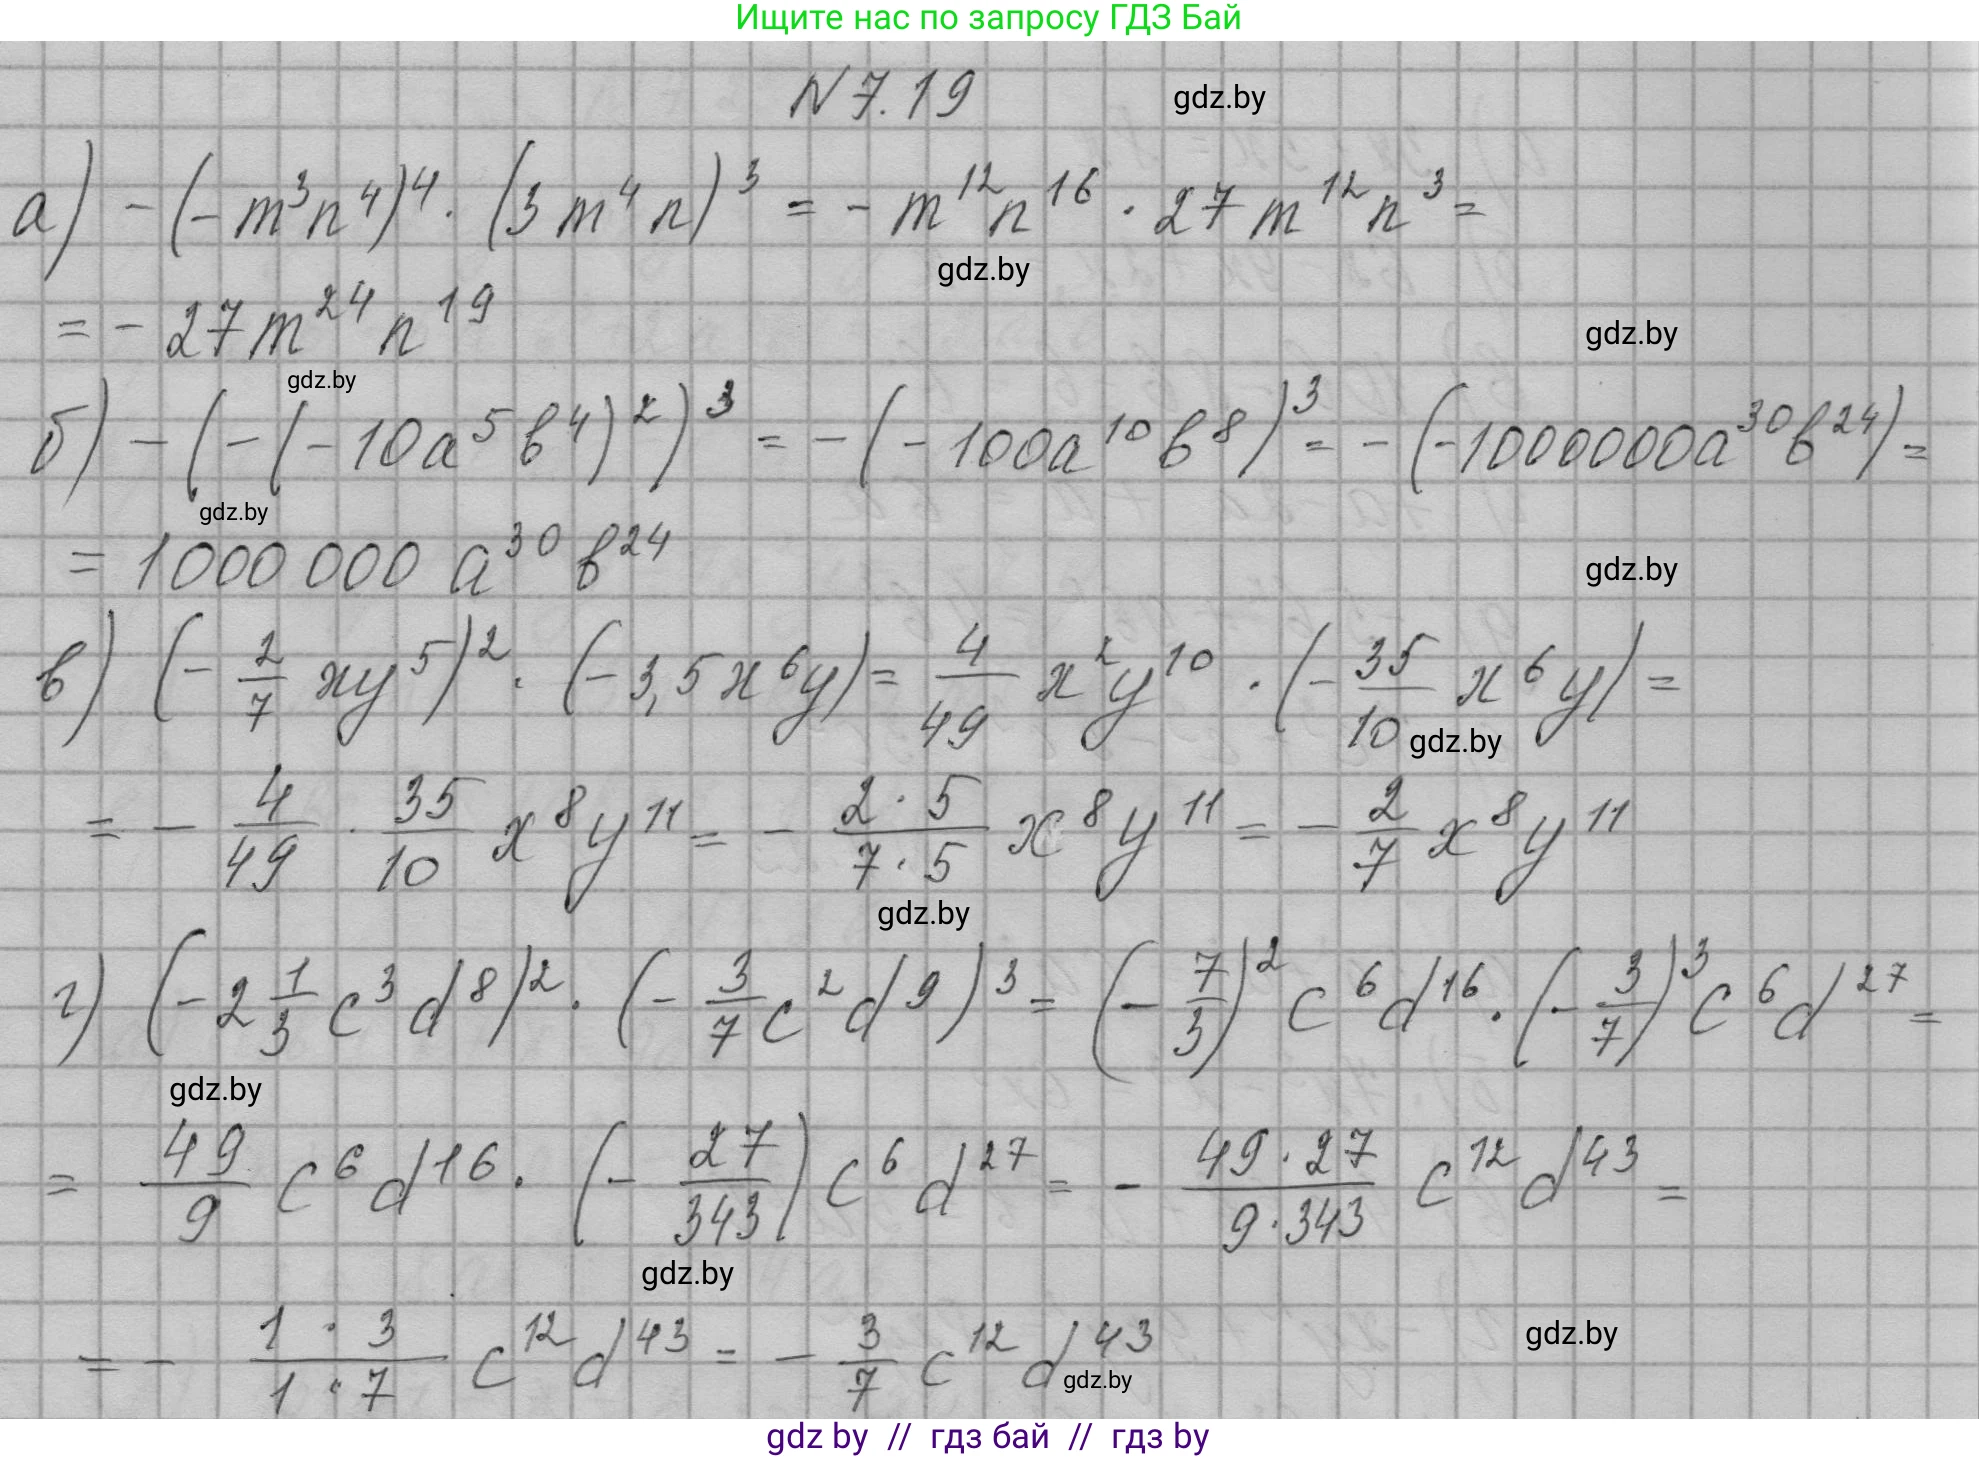 Ищите нас по запросу ГДЗ Бай
N 7.19 gdz.by
а) -(-m³n⁴)⁴ · (3m⁴n)³ = -m¹²n¹⁶ · 27m¹²n³ =
gdz.by
= -27m²⁴n¹⁹
gdz.by
gdz.by
б) -(-(-10a⁵b⁴)²)³ = -(-100a¹⁰b⁸)³ = -(-1000000a³⁰b²⁴) =
gdz.by
= 1000 000 a³⁰b²⁴
gdz.by
в) (-2/7 xy⁵)² · (-3,5x⁶y) = 4/49 x²y¹⁰ · (-35/10 x⁶y) =
gdz.by
= -4/49 · 35/10 x⁸y¹¹ = -(2·5)/(7·5) x⁸y¹¹ = -2/7 x⁸y¹¹
gdz.by
г) (-2 1/3 c³d⁸)² · (-3/7 c²d⁹)³ = (-7/3)² c⁶d¹⁶ · (-3/7)³ c⁶d²⁷ =
gdz.by
= 49/9 c⁶d¹⁶ · (-27/343) c⁶d²⁷ = -(49·27)/(9·343) c¹²d⁴³ =
gdz.by
= -(1·3)/(1·7) c¹²d⁴³ = -3/7 c¹²d⁴³
gdz.by
gdz.by
gdz by // гдз бай // гдз by